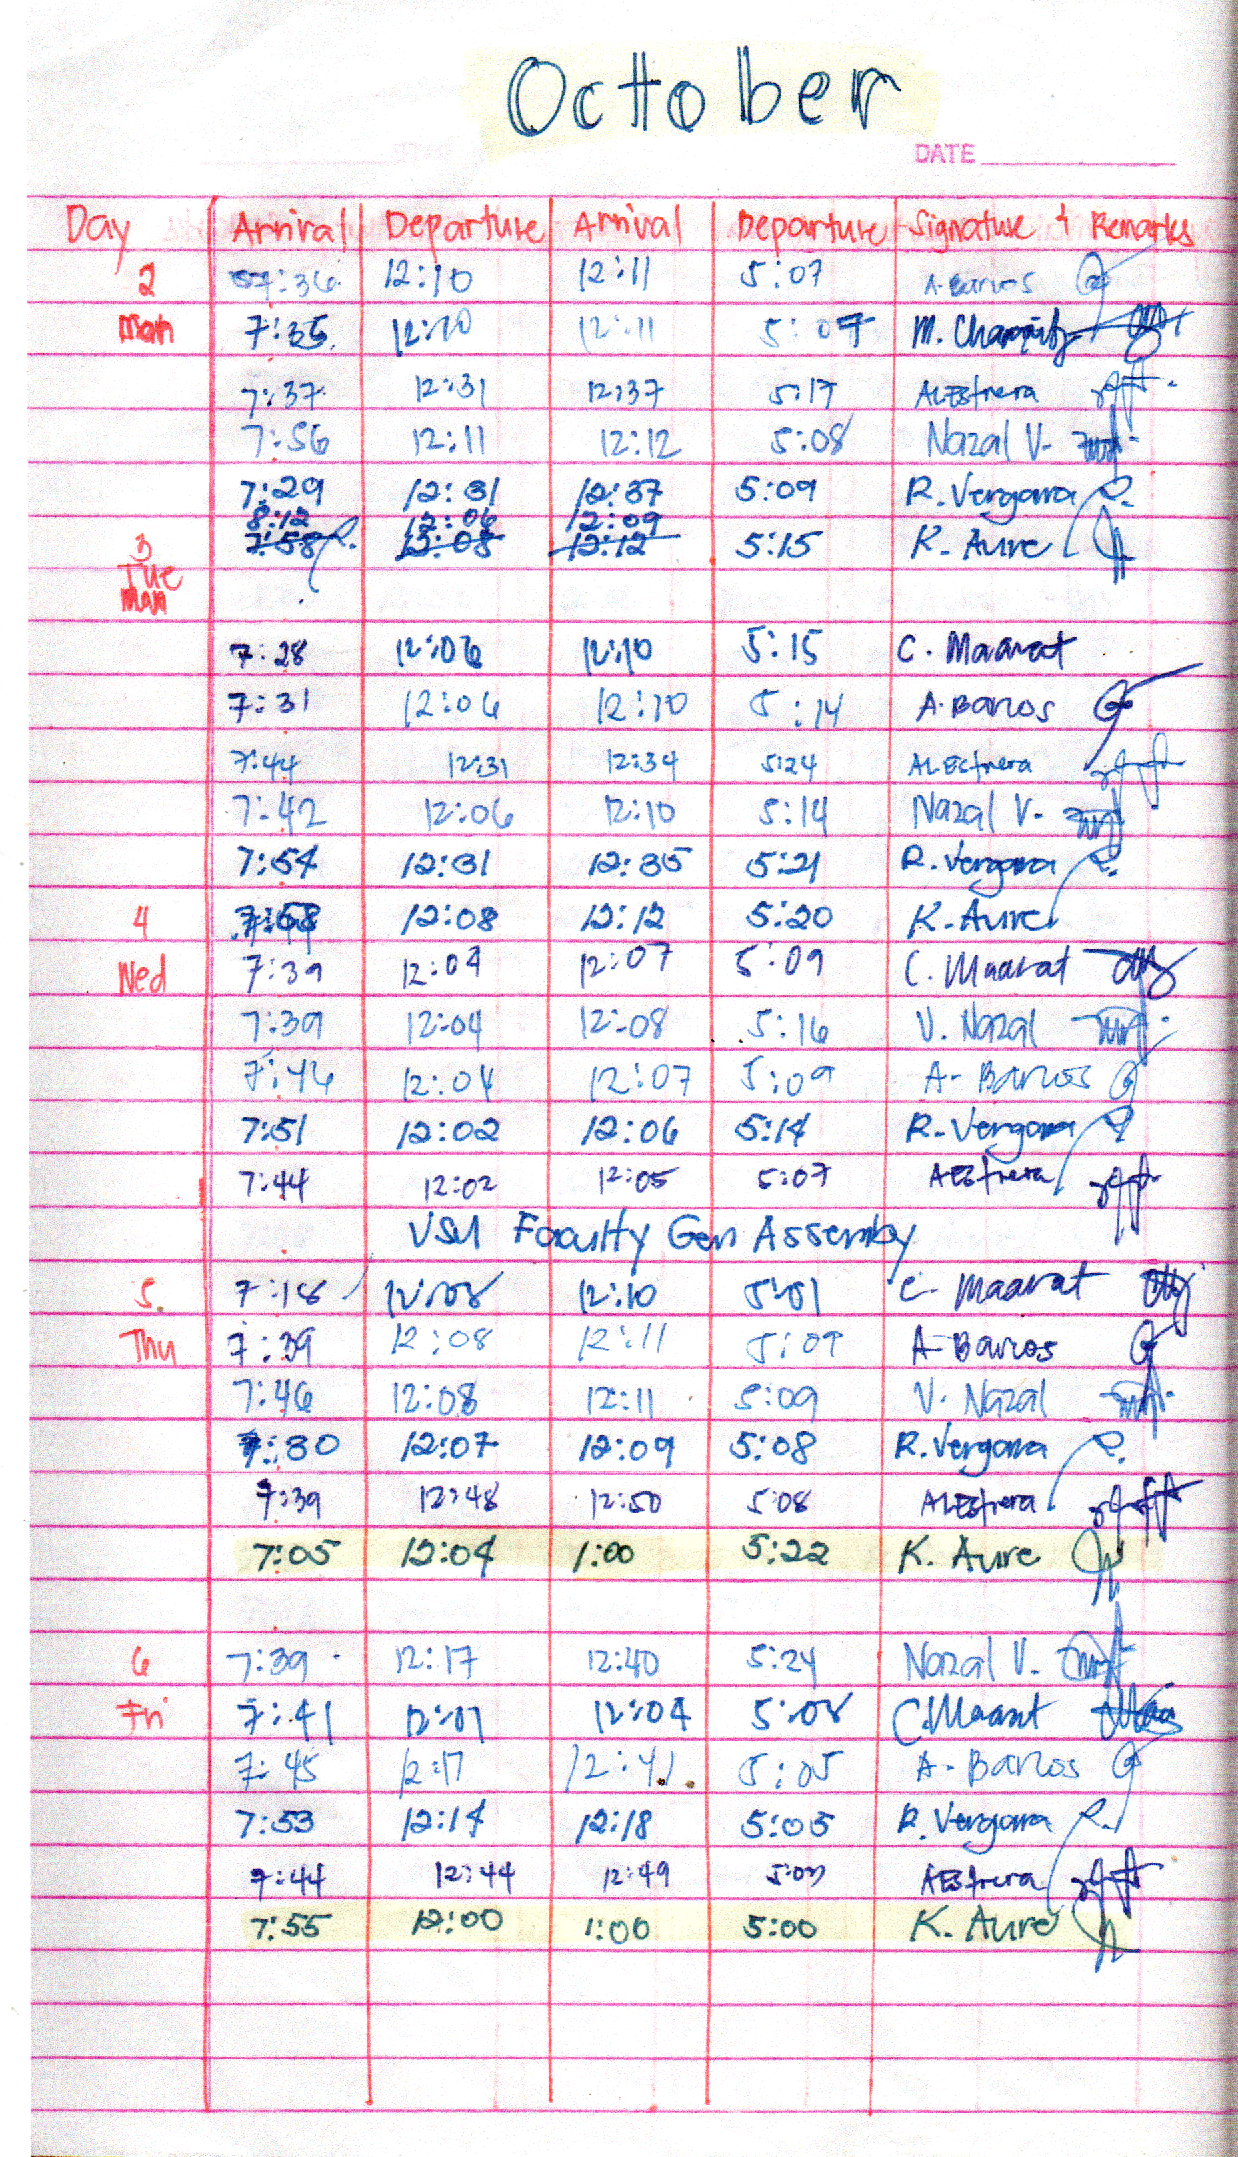 October
DATE
Day Arrival Departure Arrival Departure Signature & Remarks
2 7:36 12:10 12:11 5:07 A. Barios
Mon 7:35 12:10 12:11 5:07 M.
7:37 12:31 12:37 5:17 ALEstrera
7:56 12:11 12:12 5:08 Nazal V.
7:29 12:31 12:37 5:09 R. Vergara
8:12 12:06 12:09
3 7:58 12:08 12:12 5:15 K. Aure
Tue
Mon
7:28 12:06 12:10 5:15 C. Maarat
7:31 12:06 12:10 5:14 A. Barios
7:44 12:31 12:34 5:24 ALEstrera
7:42 12:06 12:10 5:14 Nazal V.
7:54 12:31 12:35 5:21 R. Vergara
4 12:08 12:12 5:20 K. Aure
Wed 7:39 12:04 12:07 5:09 C. Maarat
7:39 12:04 12:08 5:16 V. Nazal
7:46 12:04 12:07 5:09 A. Barios
7:51 12:02 12:06 5:14 R. Vergara
7:44 12:02 12:05 5:07 AEstrera
VSU Faculty Gen Assembly
5. 7:18 12:08 12:10 5:01 C. Maarat
Thu 7:39 12:08 12:11 5:09 A. Barios
7:46 12:08 12:11 5:09 V. Nazal
7:30 12:07 12:09 5:08 R. Vergara
7:39 12:48 12:50 5:08 ALEstrera
7:05 12:04 1:00 5:22 K. Aure
6 7:39 12:17 12:40 5:24 Nazal V.
Fri 7:41 12:01 12:04 5:08 C. Maarat
7:45 12:17 12:41 5:05 A. Barios
7:53 12:14 12:18 5:05 R. Vergara
7:44 12:44 12:49 AEstrera
7:55 12:00 1:00 5:00 K. Aure